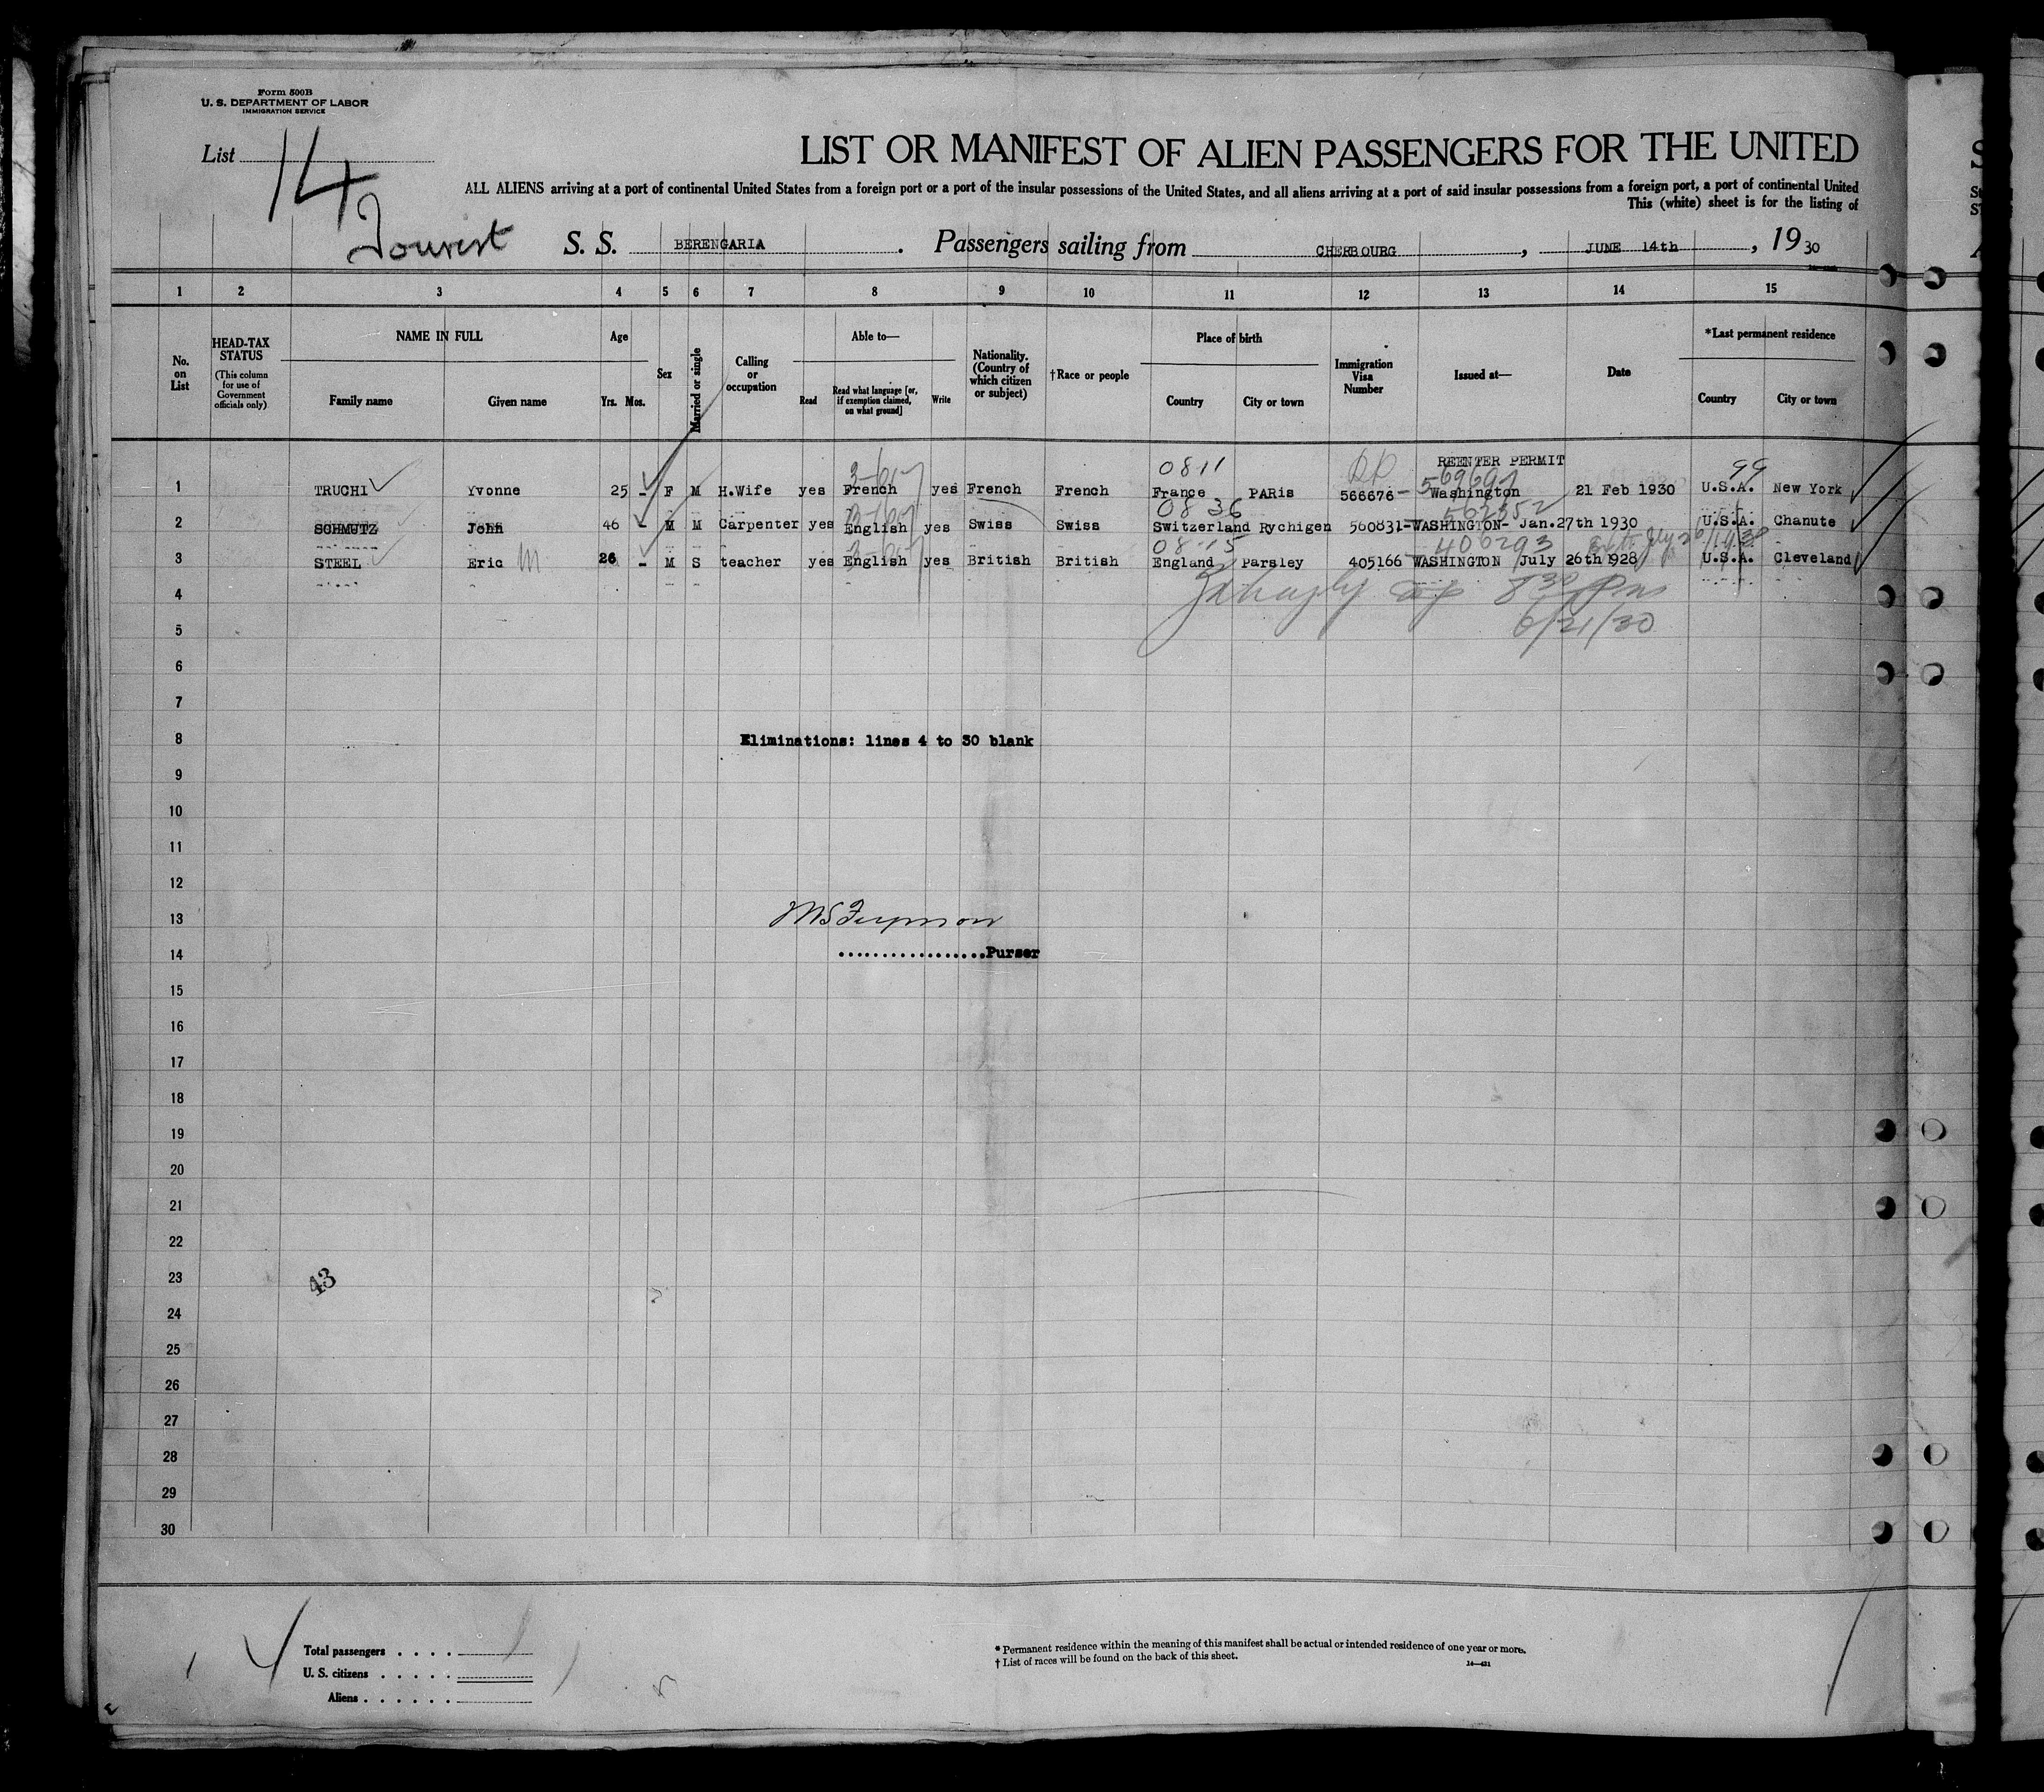 Form 500B
U. S. DEPARTMENT OF LABOR
IMMIGRATION SERVICE
List 14
LIST OR MANIFEST OF ALIEN PASSENGERS FOR THE UNITED
ALL ALIENS arriving at a port of continental United States from a foreign port or a port of the insular possessions of the United States, and all aliens arriving at a port of said insular possessions from a foreign port, a port of continental United
This (white) sheet is for the listing of
Tourist S. S. BERENGARIA . Passengers sailing from CHERBOURG , JUNE 14th , 19 30
1 2 3 4 5 6 7 8 9 10 11 12 13 14 15
No. on List
HEAD-TAX STATUS (This column for use of Government officials only)
NAME IN FULL
Family name Given name
Age
Yrs. Mos.
Sex
Married or single
Calling or occupation
Able to—
Read Read what language [or, if exemption claimed, on what ground] Write
Nationality. (Country of which citizen or subject)
†Race or people
Place of birth
Country City or town
Immigration Visa Number
Issued at—
Date
*Last permanent residence
Country City or town
0811 REENTER PERMIT 99
569697
1 TRUCHI Yvonne 25 - F M H.Wife yes French yes French French France PARis 566676- Washington 21 Feb 1930 U.S.A. New York
0836 562352
2 SCHMUTZ John 46 - M M Carpenter yes English yes Swiss Swiss Switzerland Rychigen 560831-WASHINGTON- Jan.27th 1930 U.S.A. Chanute
0815 406293
3 STEEL Eric M 26 - M S teacher yes English yes British British England Parsley 405166 WASHINGTON July 26th 1928 U.S.A. Cleveland
4 8 30 Pm
5 6/21/30
6
7
8 Eliminations: lines 4 to 30 blank
9
10
11
12
13
14 .................Purser
15
16
17
18
19
20
21
22
23 43
24
25
26
27
28
29
30
Total passengers . . . .
U. S. citizens . . . . .
Aliens . . . . . .
* Permanent residence within the meaning of this manifest shall be actual or intended residence of one year or more.
† List of races will be found on the back of this sheet.
14—421